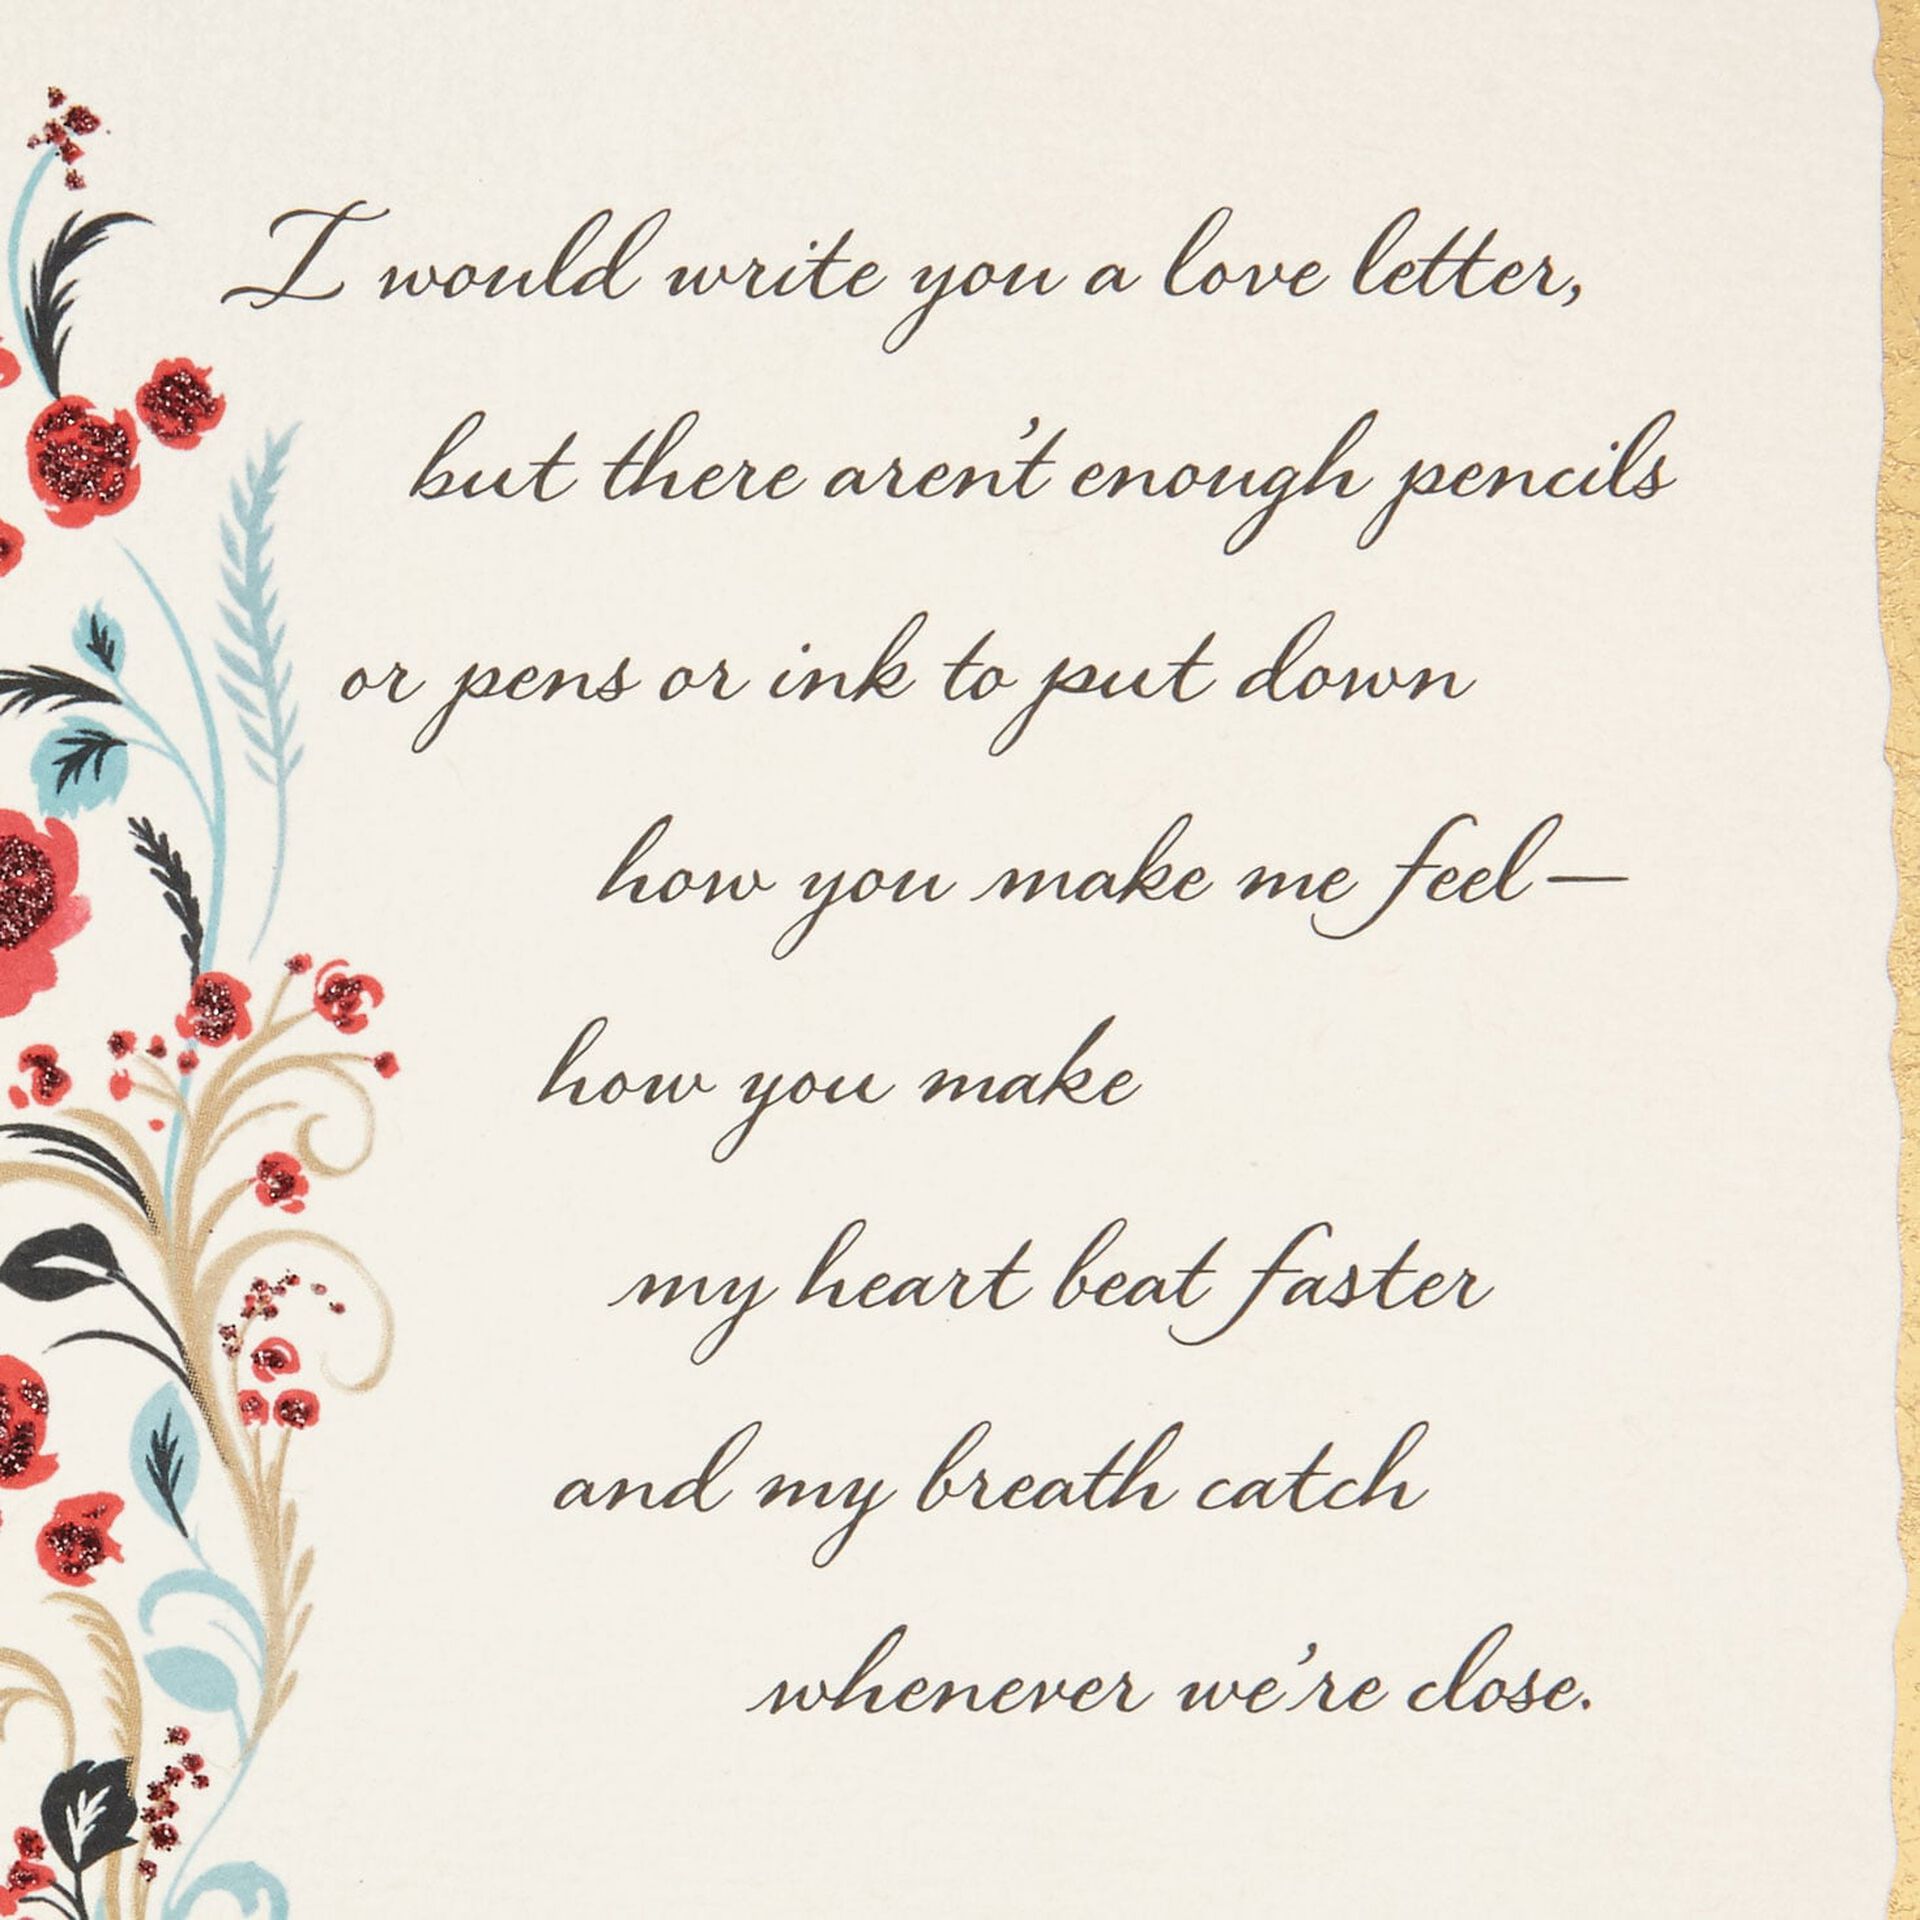 I would write you a love letter,
but there aren't enough pencils
or pens or ink to put down
how you make me feel—
how you make
my heart beat faster
and my breath catch
whenever we're close.